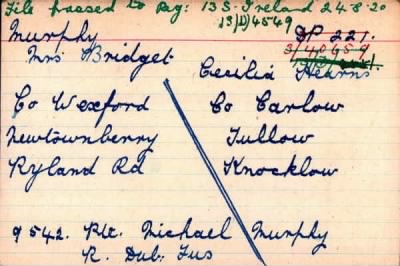 File passed to Reg: 13 S. Ireland 24-8-20
13/D/4549
Murphy SP 221.
Mrs Bridget 3/40659
Cecilia Hearns.
Co Wexford Co Carlow
Newtownberry Tullow
Ryland Rd Knocklow
9542. Pte. Michael Murphy
R. Dub. Fus